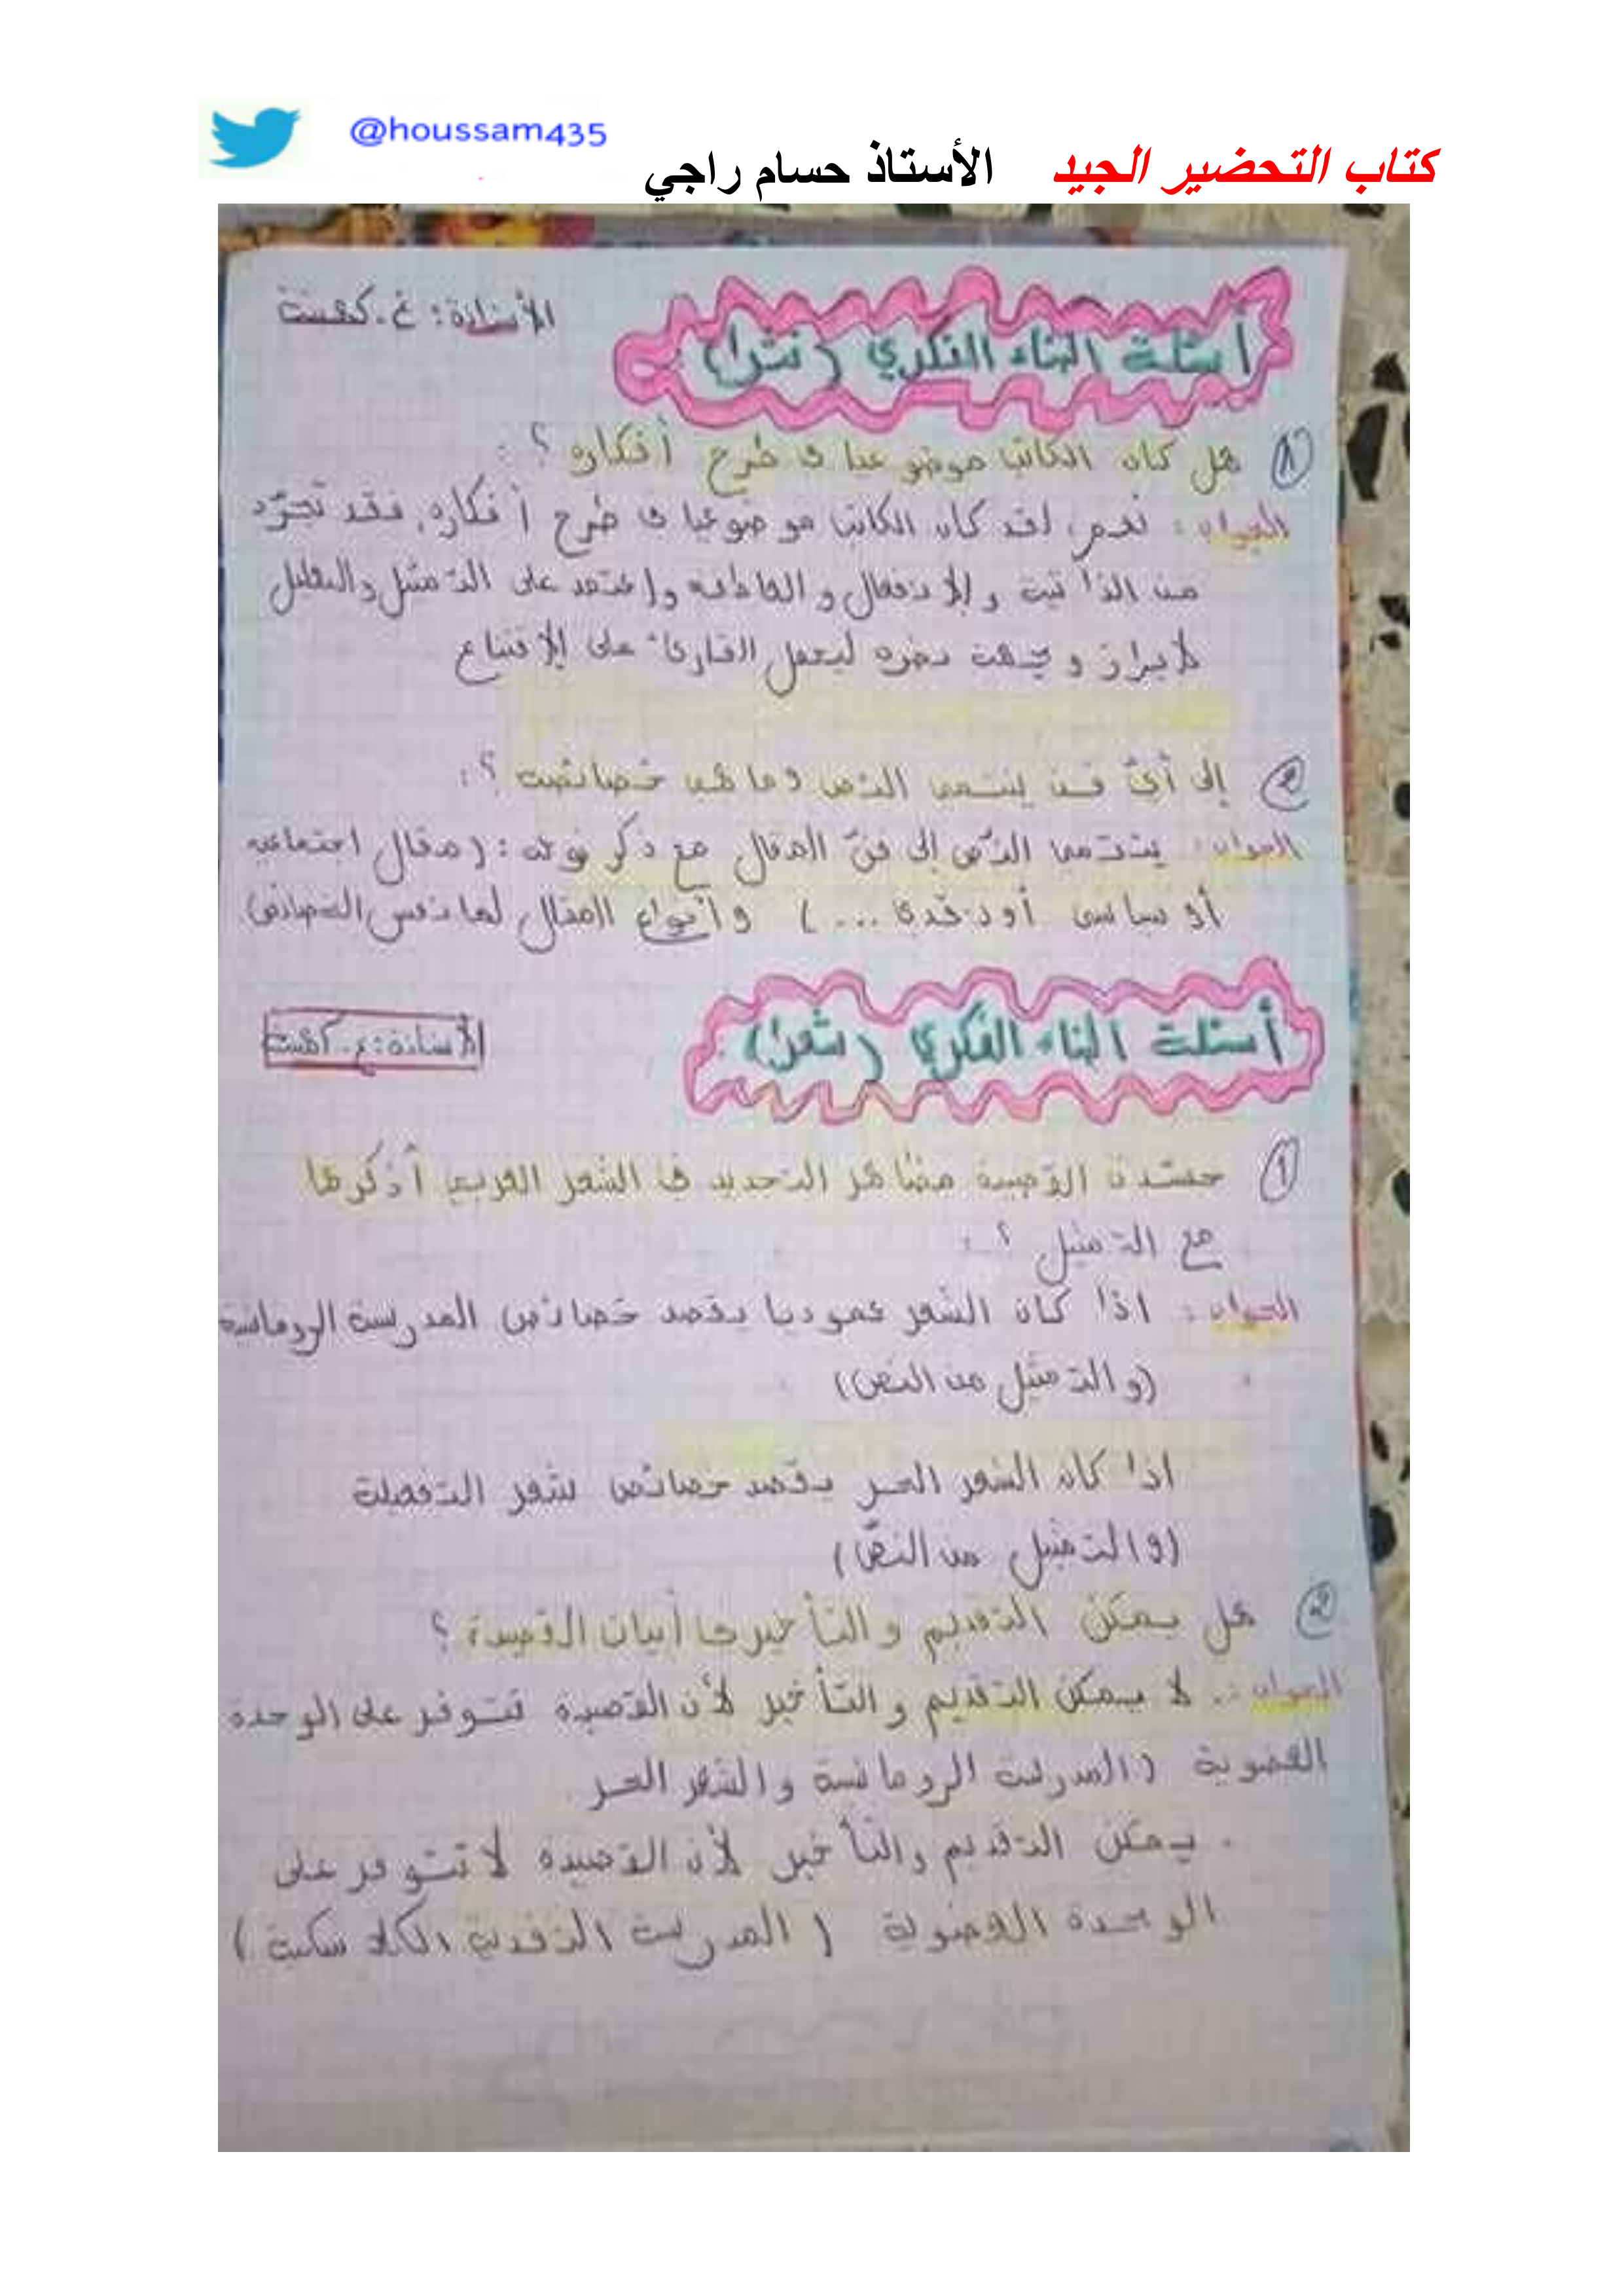 @houssam435
كتاب التحضير الجيد الأستاذ حسام راجي
أسئلة البناء الفكري (نثرا)
الأستاذة: غ.
1 هل كان الكاتب موضوعيا في طرح أفكاره ؟ :
الجواب: نعم، لقد كان الكاتب موضوعيا في طرح أفكاره، فقد تجرّد
من الذاتية و الإنفعال و العاطفة و إعتمد على التمثيل و التعليل
لابراز وجهة نضره ليحمل القارئ على الإقتناع
2 إلى أيّ فن ينتمي النص وما هي خصائصه ؟ :
الجواب: ينتمي النّص إلى فنّ المقال مع ذكر نوعه : ( مقال اجتماعي
أو سياسي أو نقدي ... ) و أنواع المقال لها نفس الخصائص
أسئلة البناء الفكري (شعرا)
الأستاذة: غ.
1 جسّدت القصيدة مضاهر التجديد في الشعر العربي أذكرها
مع التمثيل ؟ :
الجواب : اذا كان الشعر عموديا يقصد خصائص المدرسة الرومانسية
(و التمثيل من النص)
اذا كان الشعر الحر يقصد خصائص شعر التفعيلة
(و التمثيل من النصّ)
2 هل يمكن التقديم و التأخير في أبيات القصيدة ؟
الجواب: . لا يمكن التقديم و التأخير لأن القصيدة تتوفر على الوحدة
العضوية ( المدرسة الرومانسية والشعر الحر
. يمكن التقديم والتأخير لأن القصيدة لا تتوفر على
الوحدة العضوية ( المدرسة التقليدية الكلاسكية )